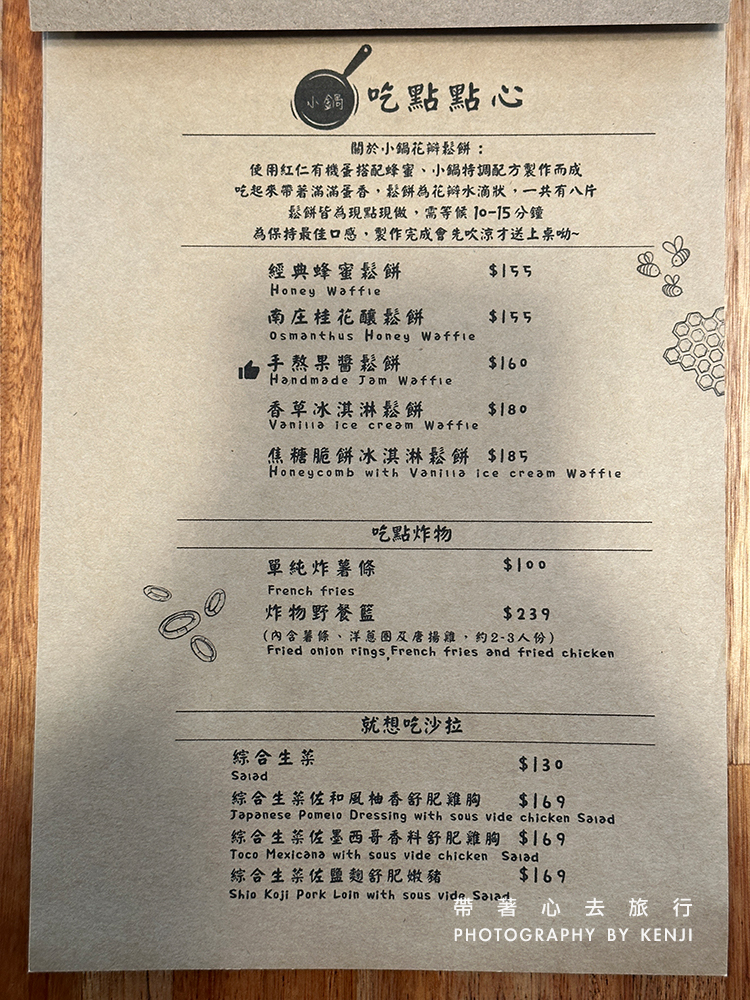 小鍋
吃點點心
關於小鍋花瓣鬆餅：
使用紅仁有機蛋搭配蜂蜜、小鍋特調配方製作而成
吃起來帶著滿滿蛋香，鬆餅為花瓣水滴狀，一共有八片
鬆餅皆為現點現做，需等候 10-15 分鐘
為保持最佳口感，製作完成會先吹涼才送上桌呦~
經典蜂蜜鬆餅 $155
Honey Waffle
南庄桂花釀鬆餅 $155
Osmanthus Honey Waffle
手熬果醬鬆餅 $160
Handmade Jam Waffle
香草冰淇淋鬆餅 $180
Vanilla ice cream Waffle
焦糖脆餅冰淇淋鬆餅 $185
Honeycomb with Vanilla ice cream Waffle
吃點炸物
單純炸薯條 $100
French fries
炸物野餐籃 $239
(內含薯條、洋蔥圈及唐揚雞，約2-3人份)
Fried onion rings,French fries and fried chicken
就想吃沙拉
綜合生菜 $130
Salad
綜合生菜佐和風柚香舒肥雞胸 $169
Japanese Pomelo Dressing with sous vide chicken Salad
綜合生菜佐墨西哥香料舒肥雞胸 $169
Toco Mexicana with sous vide chicken Salad
綜合生菜佐鹽麴舒肥嫩豬 $169
Shio Koji Pork Loin with sous vide Salad
帶著心去旅行
PHOTOGRAPHY BY KENJI